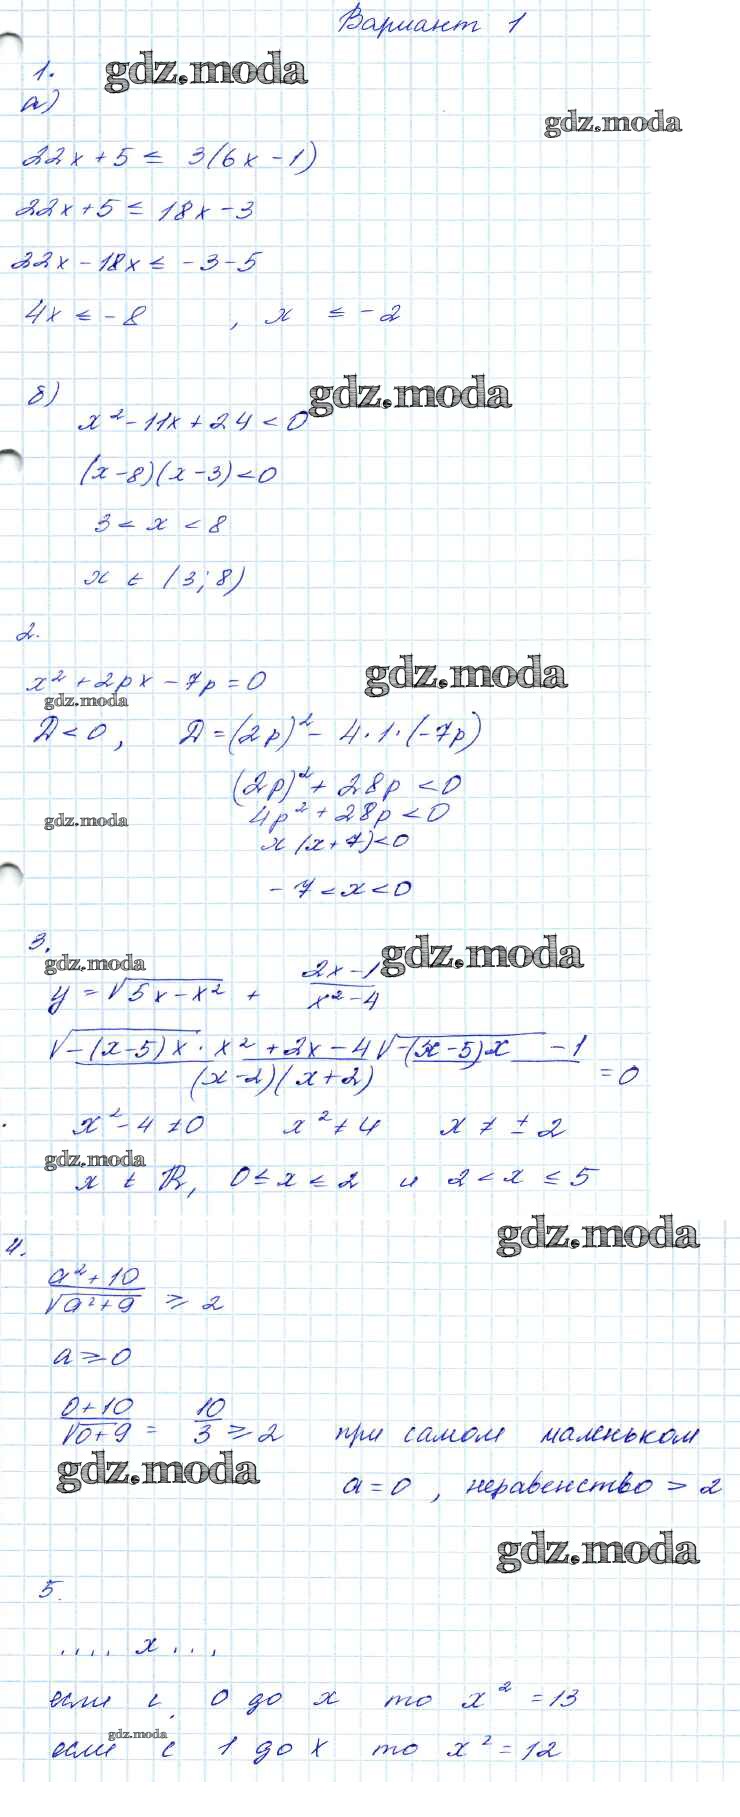 Вариант 1
1. gdz.moda
а) gdz.moda
22x + 5 ≤ 3(6x - 1)
22x + 5 ≤ 18x - 3
22x - 18x ≤ -3 - 5
4x ≤ -8 , x ≤ -2
б) gdz.moda
x² - 11x + 24 < 0
(x - 8)(x - 3) < 0
3 < x < 8
x ∈ (3; 8)
2.
x² + 2px - 7p = 0 gdz.moda
gdz.moda
D < 0, D = (2p)² - 4·1·(-7p)
(2p)² + 28p < 0
gdz.moda 4p² + 28p < 0
x(x + 7) < 0
-7 < x < 0
3. gdz.moda
gdz.moda
y = √(5x - x²) + (2x - 1)/(x² - 4)
(√(-(x-5)x) · x² + 2x - 4√(-(x-5)x) - 1)/((x-2)(x+2)) = 0
x² - 4 ≠ 0 x² ≠ 4 x ≠ ± 2
gdz.moda
x ∈ R, 0 ≤ x ≤ 2 и 2 < x ≤ 5
4. gdz.moda
(a² + 10)/√(a² + 9) ≥ 2
a ≥ 0
(0 + 10)/√(0 + 9) = 10/3 ≥ 2 при самом маленьком
gdz.moda a = 0, неравенство > 2
gdz.moda
5.
.... x ...
если с 0 до x то x² = 13
gdz.moda
если с 1 до x то x² = 12